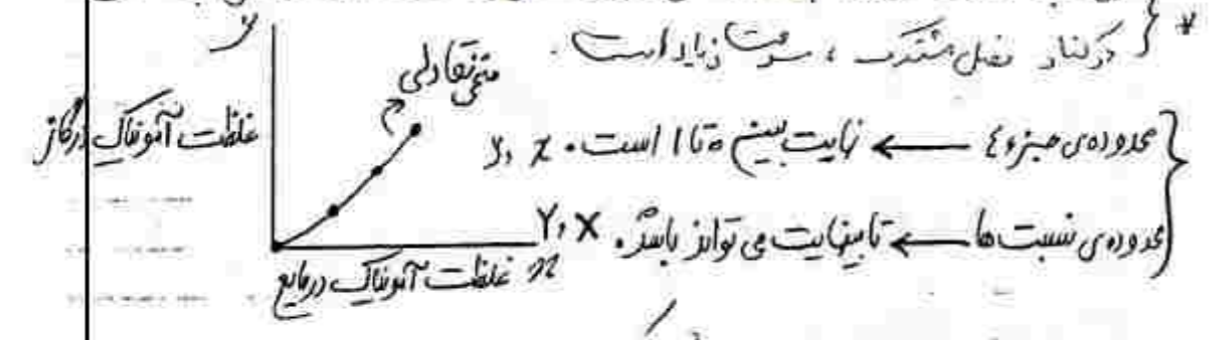 * { در کنار فصل مشترک ، سرعت زیاد است .
y
منحنی تعادلی
غلظت آمونیاک در گاز
محدوده‌ی جزء ← نهایت بین 0 تا 1 است . x و y
محدوده‌ی نسبت ها ← تا بینهایت می تواند باشد . X و Y
x غلظت آمونیاک در مایع